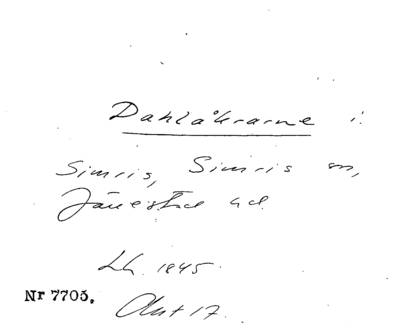 Dahlåkrarne i
Simris, Simris sn,
Järrestad hd.
Lh. 1845.
Nr 7705.
Akt 17.